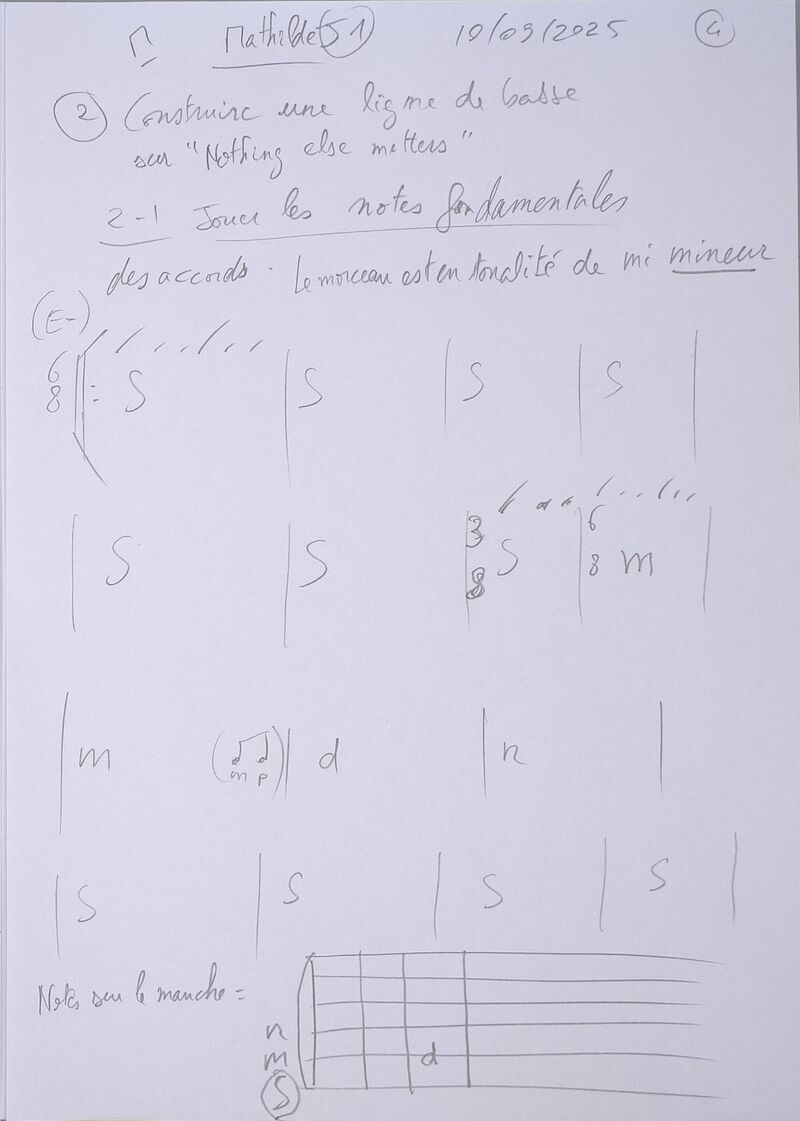 Mathilde (S1) 19/09/2025 4
2 Construire une ligne de basse
sur "Nothing else matters"
2-1 Jouer les notes fondamentales
des accords. Le morceau est en tonalité de mi mineur
(E-)
6 8 : S | S | S | S |
| S | S | 3 8 S | 6 8 m |
| m (m p) | d | r |
| S | S | S | S |
Notes sur le manche =
r
m d
S